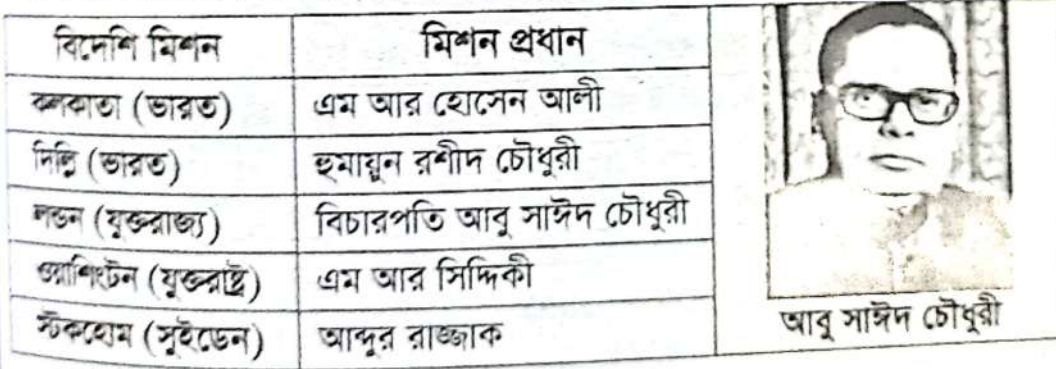 বিদেশি মিশন মিশন প্রধান
কলকাতা (ভারত) এম আর হোসেন আলী
দিল্লি (ভারত) হুমায়ুন রশীদ চৌধুরী
লন্ডন (যুক্তরাজ্য) বিচারপতি আবু সাঈদ চৌধুরী
ওয়াশিংটন (যুক্তরাষ্ট্র) এম আর সিদ্দিকী
স্টকহোম (সুইডেন) আব্দুর রাজ্জাক
আবু সাঈদ চৌধুরী